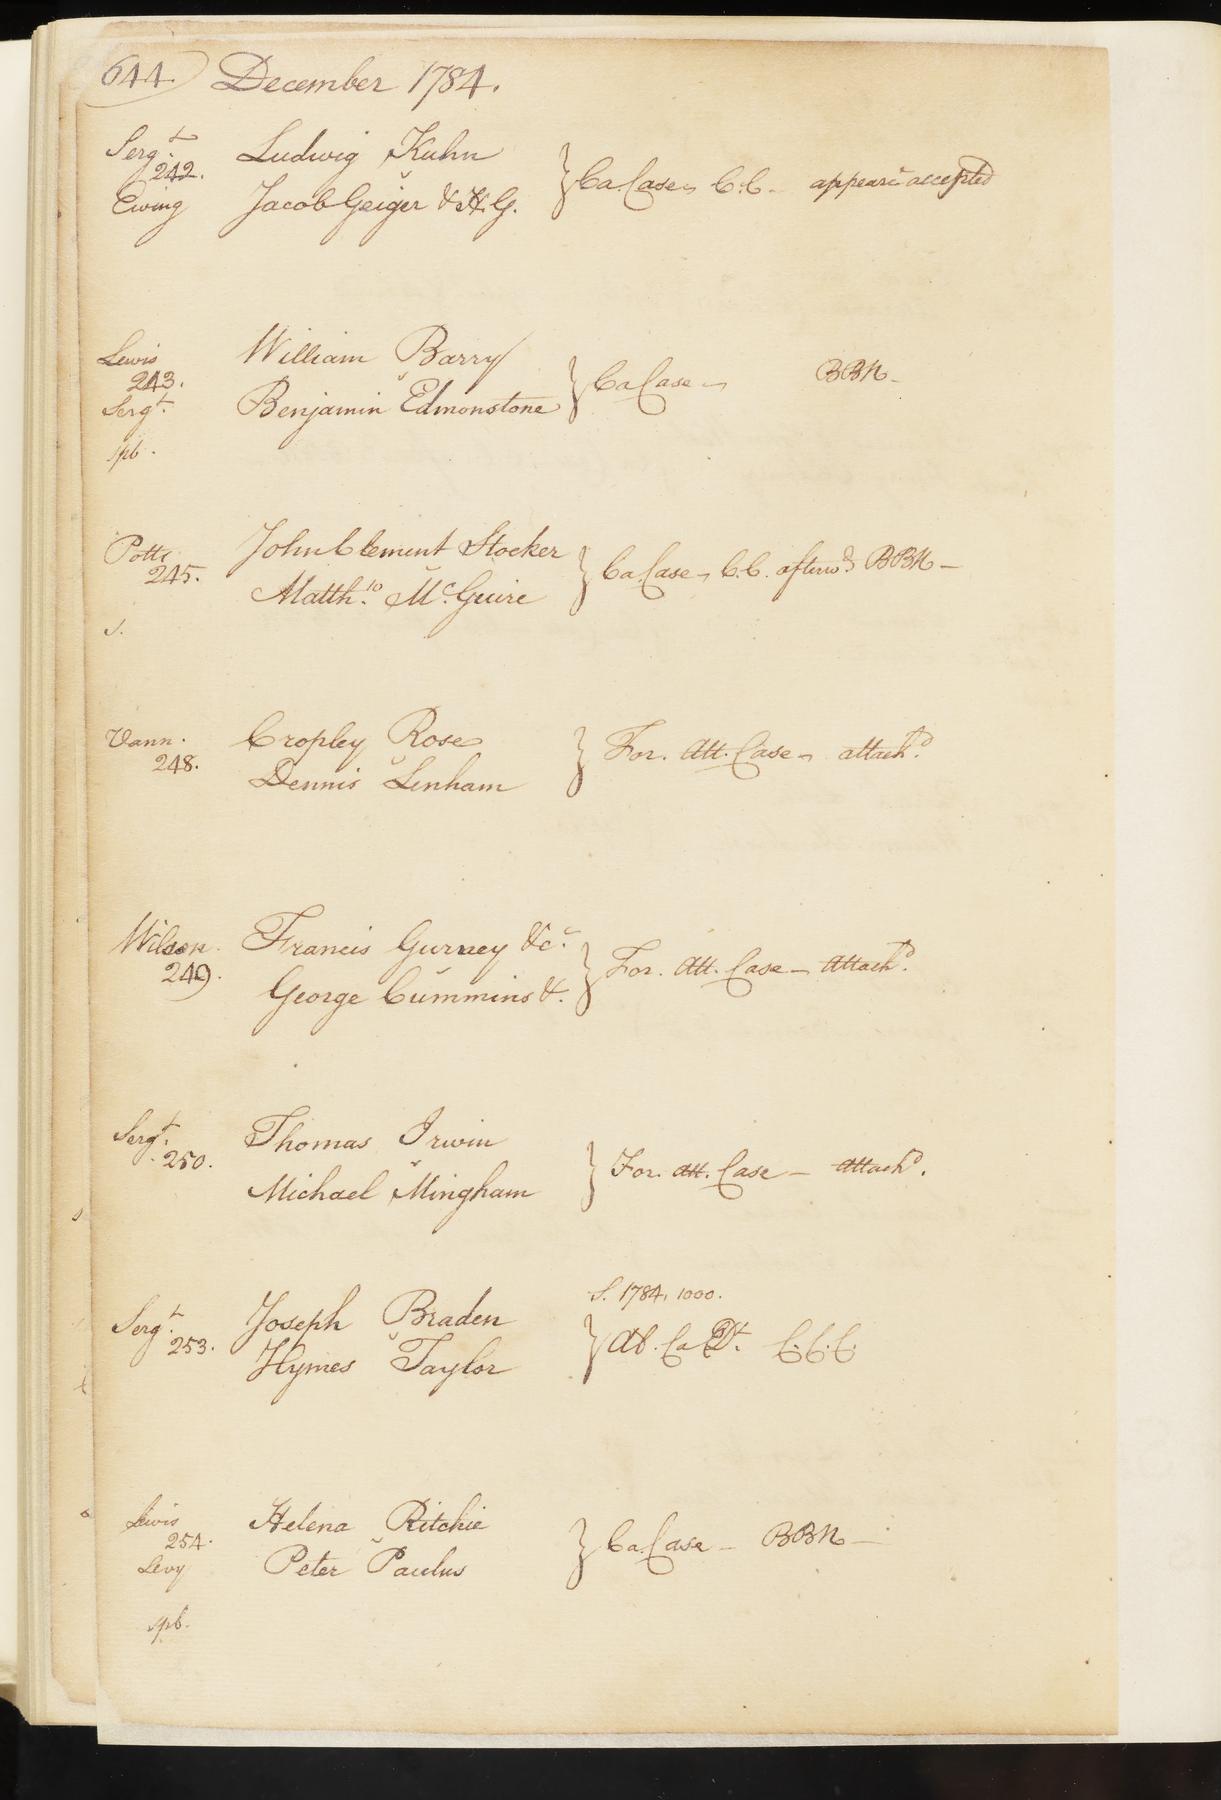 644. December 1784.
Sergt. Ludwig Kuhn
242. v } Ca. Case C.C. appearce accepted
Ewing Jacob Geiger & H.G.
Lewis William Barry
243. v } Ca Case BBN
Sergt. Benjamin Edmonstone
spb.
Potts John Clement Stocker
245. v } Ca. Case C.C. afterwds BBN
Matthw. McGuire
s.
Vann. Cropley Rose
248. v } For. Att. Case attachd.
Dennis Lenham
Wilson Francis Gurney &c.
249. v } For. Att. Case Attachd.
George Cummins &.
Sergt. Thomas Irwin
250. v } For. att. Case Attachd.
Michael Mingham
S. 1784, 1000.
Sergt. Joseph Braden
253. v } Al. Ca Dt. C.C.C.
Hymes Taylor
Lewis Helena Ritchie
254. v } Ca. Case BBN
Levy Peter Paulus
spb.